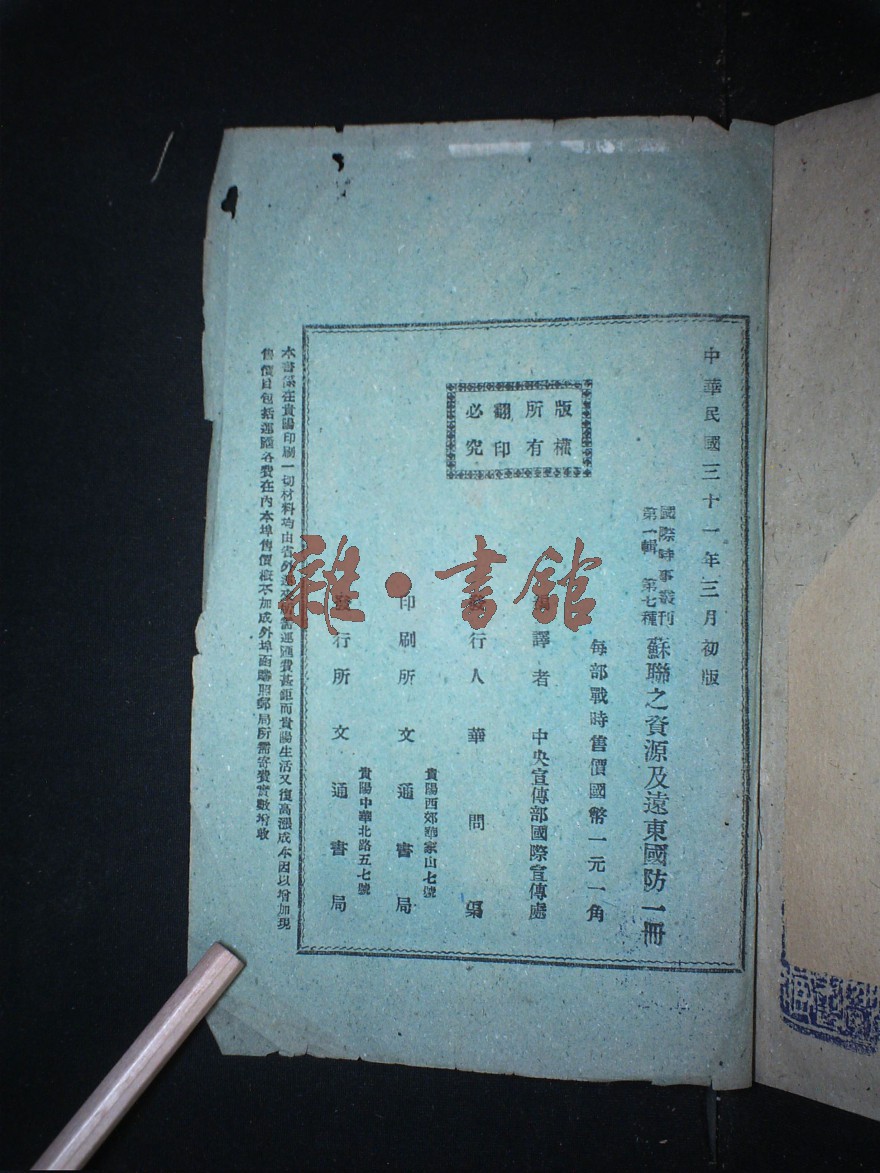 中華民國三十一年三月初版
國際時事叢刊
第一輯 第七種
蘇聯之資源及遠東國防一冊
每部戰時售價國幣一元一角
版權
所有
翻印
必究
譯者 中央宣傳部國際宣傳處
發行人 華問渠
貴陽西郊華家山七號
印刷所 文通書局
貴陽中華北路五七號
發行所 文通書局
本書係在貴陽印刷一切材料均由省外運來所需運匯費甚鉅而貴陽生活又復高漲成本因以增加現
售價目包括運匯各費在內本埠售價概不加成外埠函購照郵局所需寄費實數增收
雜·書館